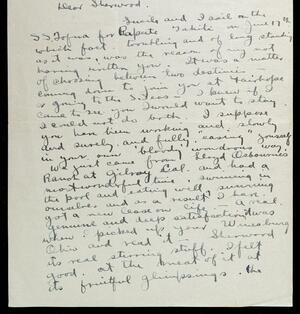 Dear Sherwood.
Truely and I sail on the
SS Tofua for Papeete Tahiti on June 17th
which fact troubling and of long standing
as it was, was the reason of my not
having written you. It was a matter
of choosing between two destinies.
coming down to join you at Fairhope
or going to the S. Seas. I knew if I
came to see you I would want to stay.
I could not do both. I suppose
you have been working and slowly
and surely and fully "easing" yourself
in your own bloody wondrous way
We just came from Lloyd Osbournes
Ranch at Gilroy Cal. and had a
most wonderful time, swimming in
the pool and eating well, sunning
ourselves and as a result I have
got a new lease on life. A real
genuine and deep satisfaction it was
when I picked up your Winesburg
Ohio and read it — Sherwood
its real stirring stuff. I felt
good. at the of it at
its fruitful glimpsings. the